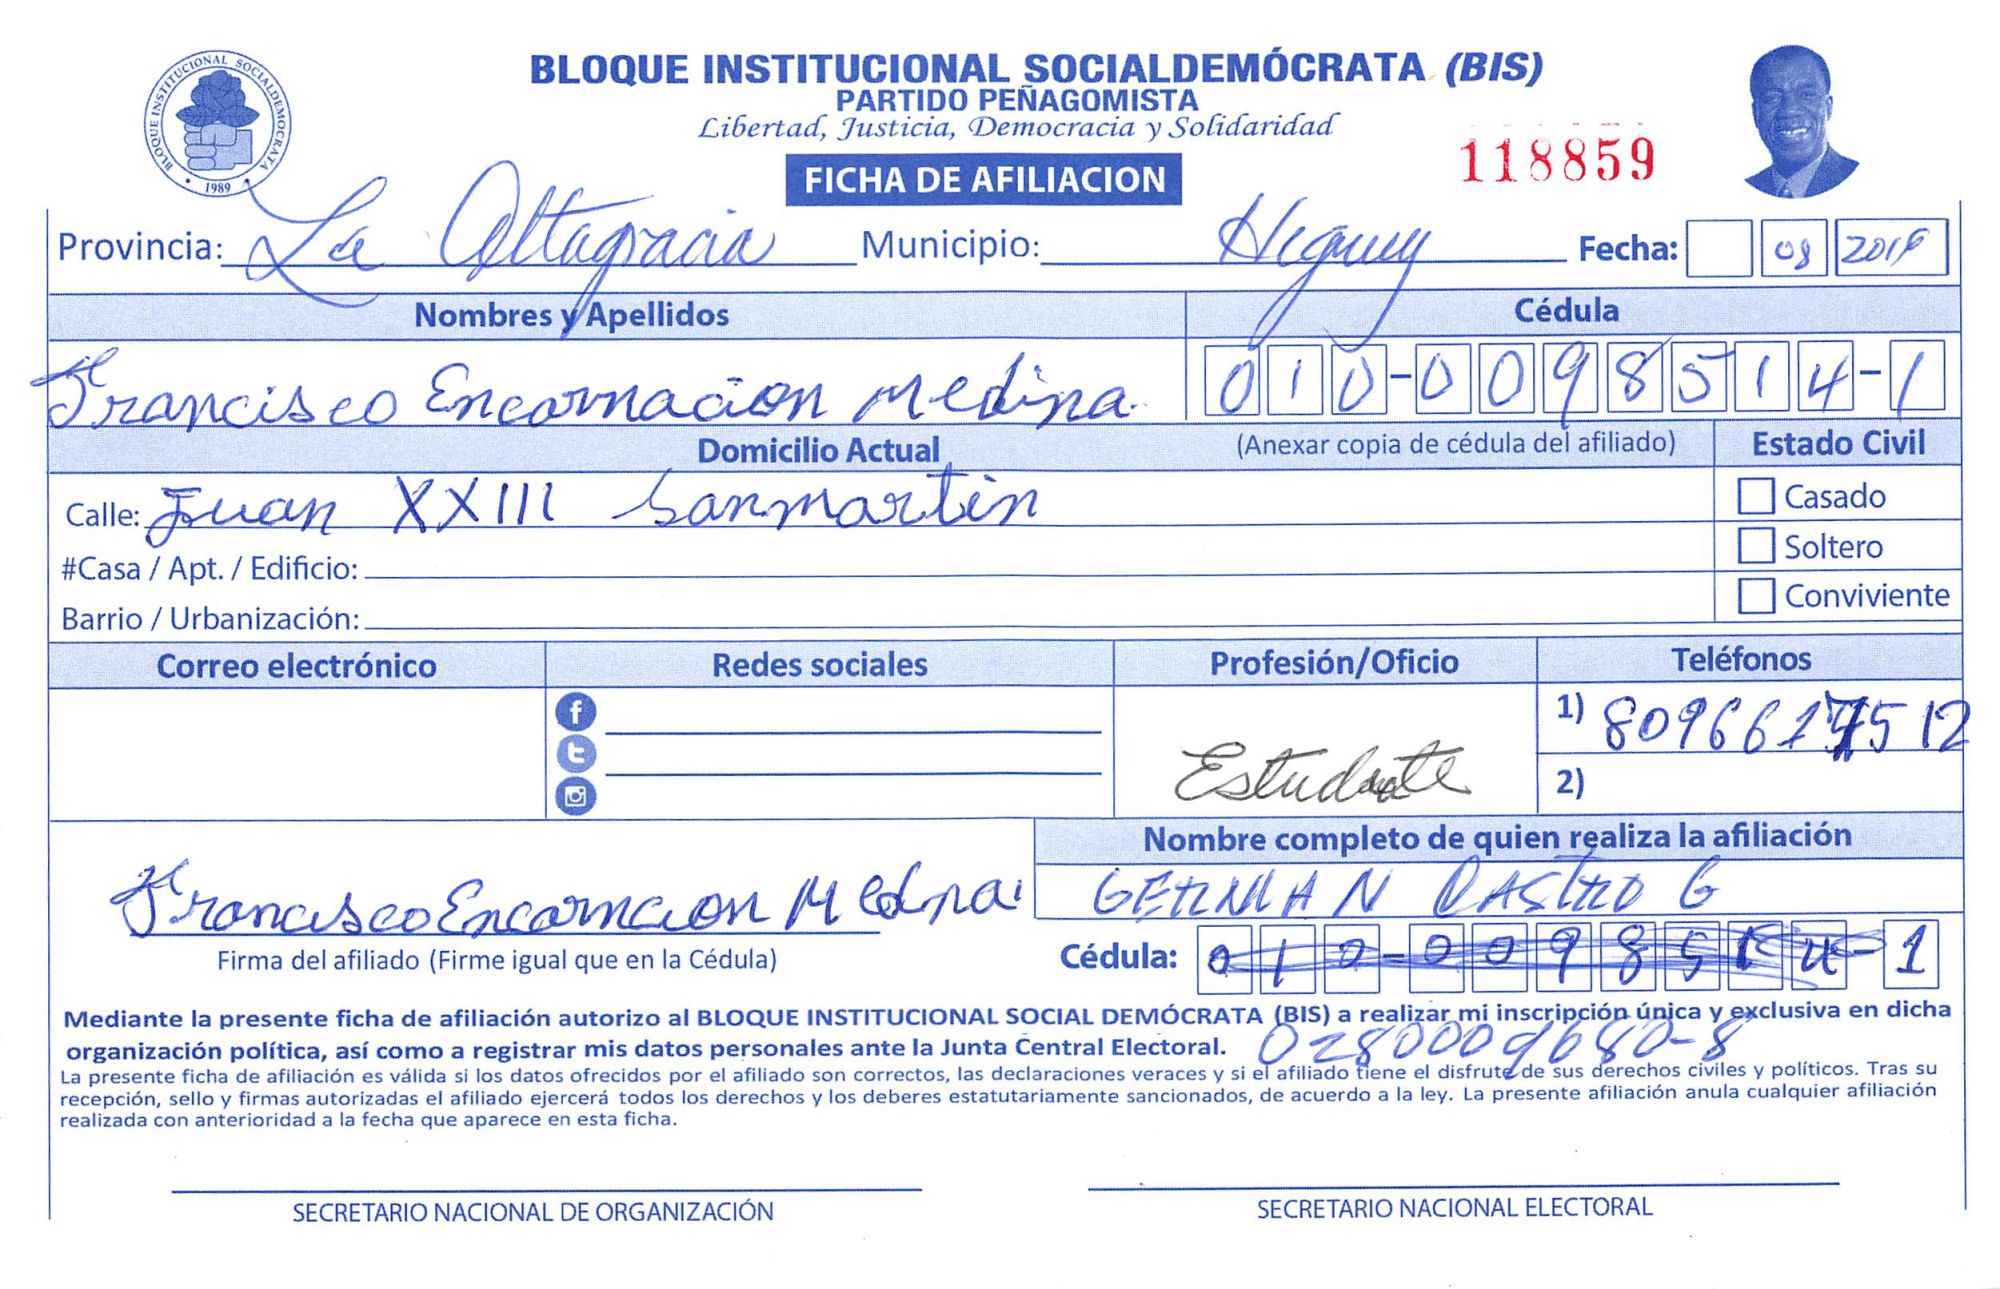 BLOQUE INSTITUCIONAL SOCIALDEMÓCRATA (BIS)
PARTIDO PEÑAGOMISTA
Libertad, Justicia, Democracia y Solidaridad
BLOQUE INSTITUCIONAL SOCIALDEMOCRATA
• 1989 •
FICHA DE AFILIACION
118859
Provincia: La Altagracia Municipio: Higuey Fecha: 08 2019
Nombres y Apellidos Cédula
Francisco Encarnacion Medina 010-0098514-1
Domicilio Actual (Anexar copia de cédula del afiliado) Estado Civil
Calle: Juan XXIII Sanmartin Casado
#Casa / Apt. / Edificio: Soltero
Barrio / Urbanización: Conviviente
Correo electrónico Redes sociales Profesión/Oficio Teléfonos
1)
Estudiante
2)
Nombre completo de quien realiza la afiliación
Francisco Encarnacion Medina GERMAN CASTRO G
Firma del afiliado (Firme igual que en la Cédula) Cédula: 010-0098514-1
Mediante la presente ficha de afiliación autorizo al BLOQUE INSTITUCIONAL SOCIAL DEMÓCRATA (BIS) a realizar mi inscripción única y exclusiva en dicha
organización política, así como a registrar mis datos personales ante la Junta Central Electoral. 0280009680-8
La presente ficha de afiliación es válida si los datos ofrecidos por el afiliado son correctos, las declaraciones veraces y si el afiliado tiene el disfrute de sus derechos civiles y políticos. Tras su
recepción, sello y firmas autorizadas el afiliado ejercerá todos los derechos y los deberes estatutariamente sancionados, de acuerdo a la ley. La presente afiliación anula cualquier afiliación
realizada con anterioridad a la fecha que aparece en esta ficha.
SECRETARIO NACIONAL DE ORGANIZACIÓN SECRETARIO NACIONAL ELECTORAL